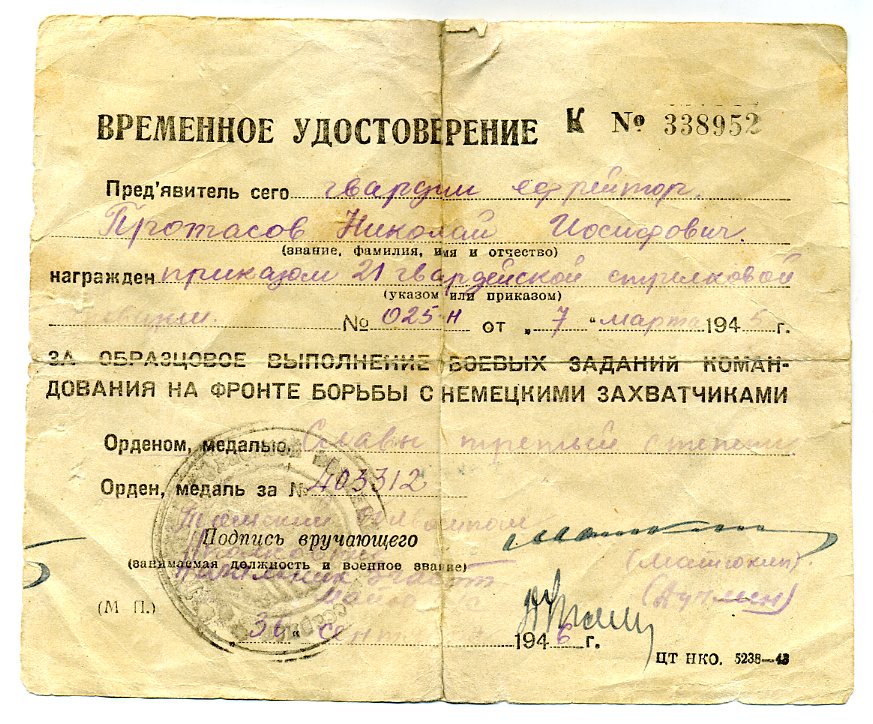 ВРЕМЕННОЕ УДОСТОВЕРЕНИЕ К № 338952
Пред'явитель сего гвардии ефрейтор
Протасов Николай Иосифович.
(звание, фамилия, имя и отчество)
награжден приказом 21 гвардейской стрелковой
(указом или приказом)
дивизии. № 025-н от „7 “ марта 1945 г.
ЗА ОБРАЗЦОВОЕ ВЫПОЛНЕНИЕ БОЕВЫХ ЗАДАНИЙ КОМАН-
ДОВАНИЯ НА ФРОНТЕ БОРЬБЫ С НЕМЕЦКИМИ ЗАХВАТЧИКАМИ
Орденом, медалью, Славы третьей степени
Орден, медаль за № 403312
Подпись вручающего
(занимаемая должность и военное звание)
(М П.)
1946 г.
ЦТ НКО. 5238—43